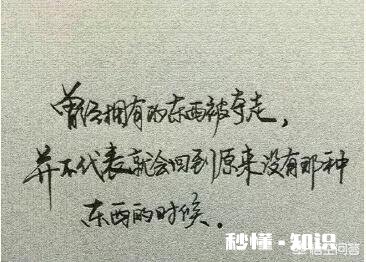 曾经拥有的东西被夺走，
并不代表就会回到原来没有那种
东西的时候.
秒懂-知识
悟空问答